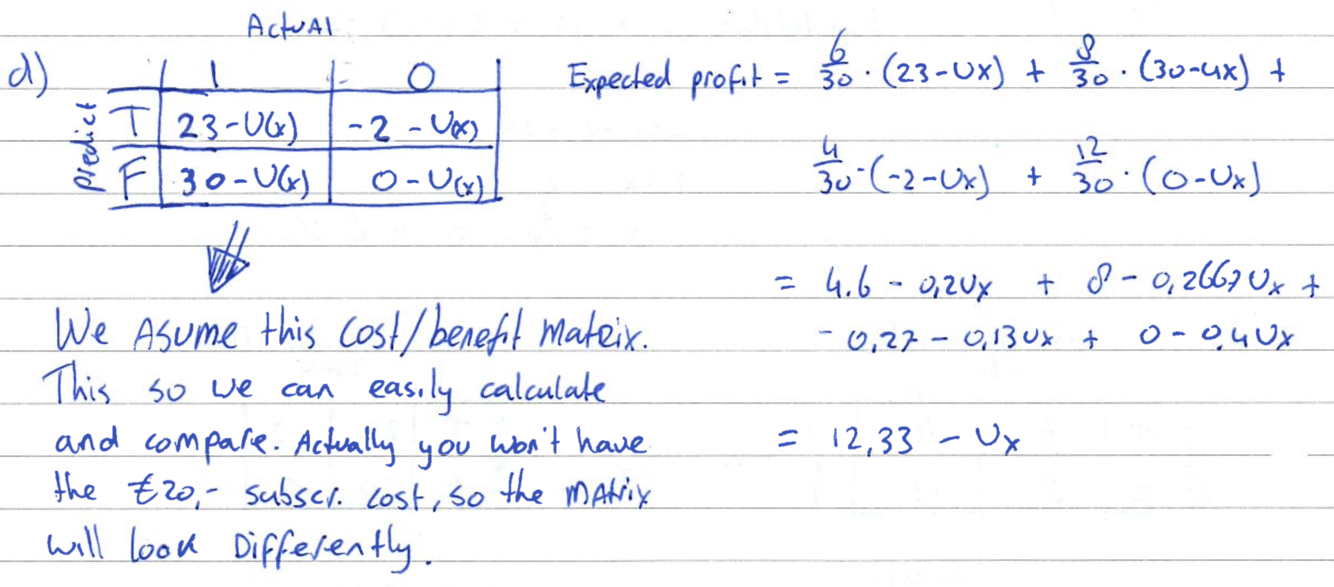 Actual
d)
1 0
predict
T 23-U(x) -2 - U(x)
F 30-U(x) 0-U(x)
We Asume this cost/benefit matrix.
This so we can easily calculate
and compare. Actually you won't have
the €20,- subscr. cost, so the matrix
will look Differently.
Expected profit = 6/30 · (23-Ux) + 8/30 · (30-Ux) +
4/30 · (-2-Ux) + 12/30 · (0-Ux)
= 4.6 - 0,2Ux + 8 - 0,2667Ux +
- 0,27 - 0,13Ux + 0 - 0,4Ux
= 12,33 - Ux